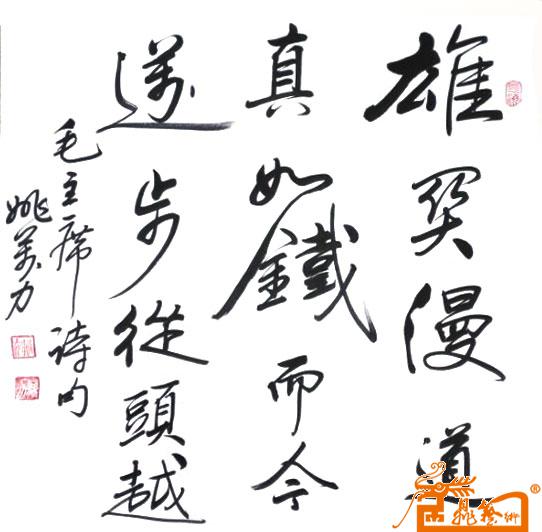 雄関漫道
真如鐵而今
邁步從頭越
毛主席诗句
姚萬力